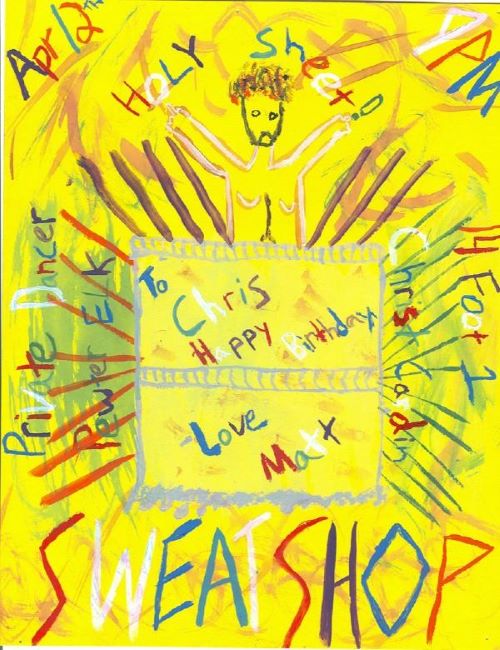 Apr 12th
Holy Sheet!
9PM
Private Dancer
Pewter Elk
To
Chris
Happy Birthday,
Love
Matt
Christ Cardin
14 Foot 1
SWEATSHOP